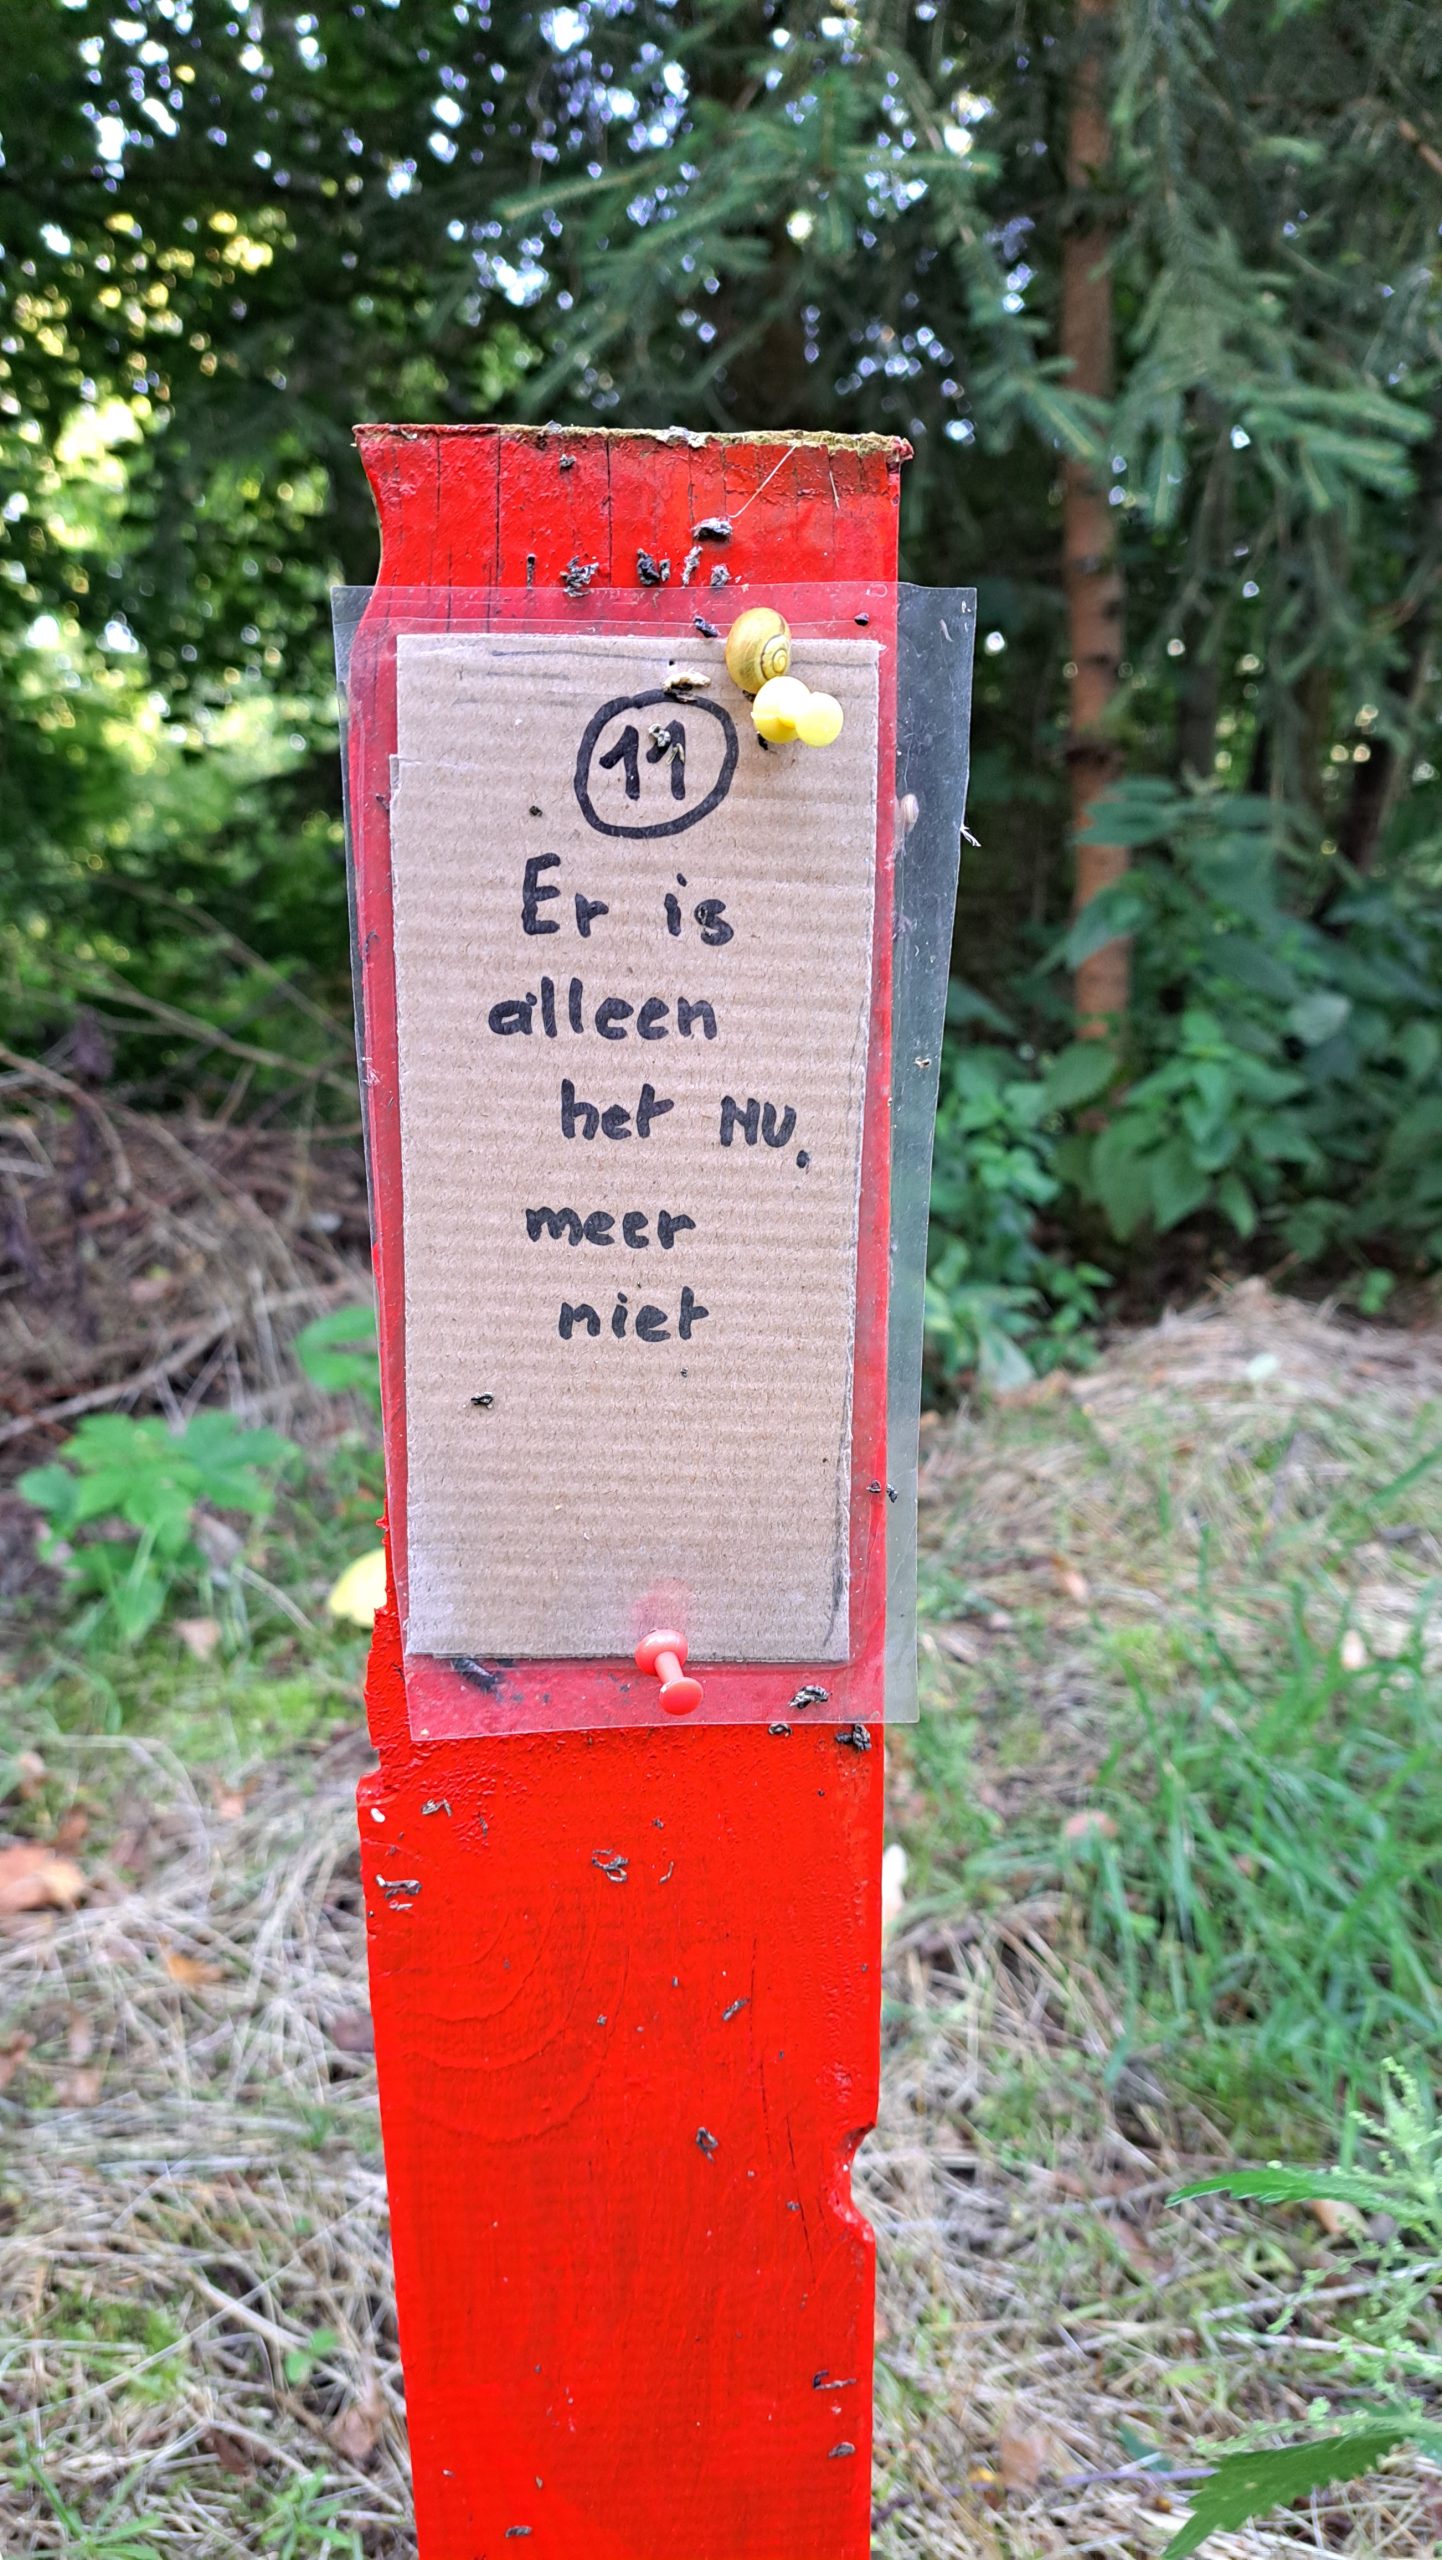 11
Er is
alleen
het NU,
meer
niet